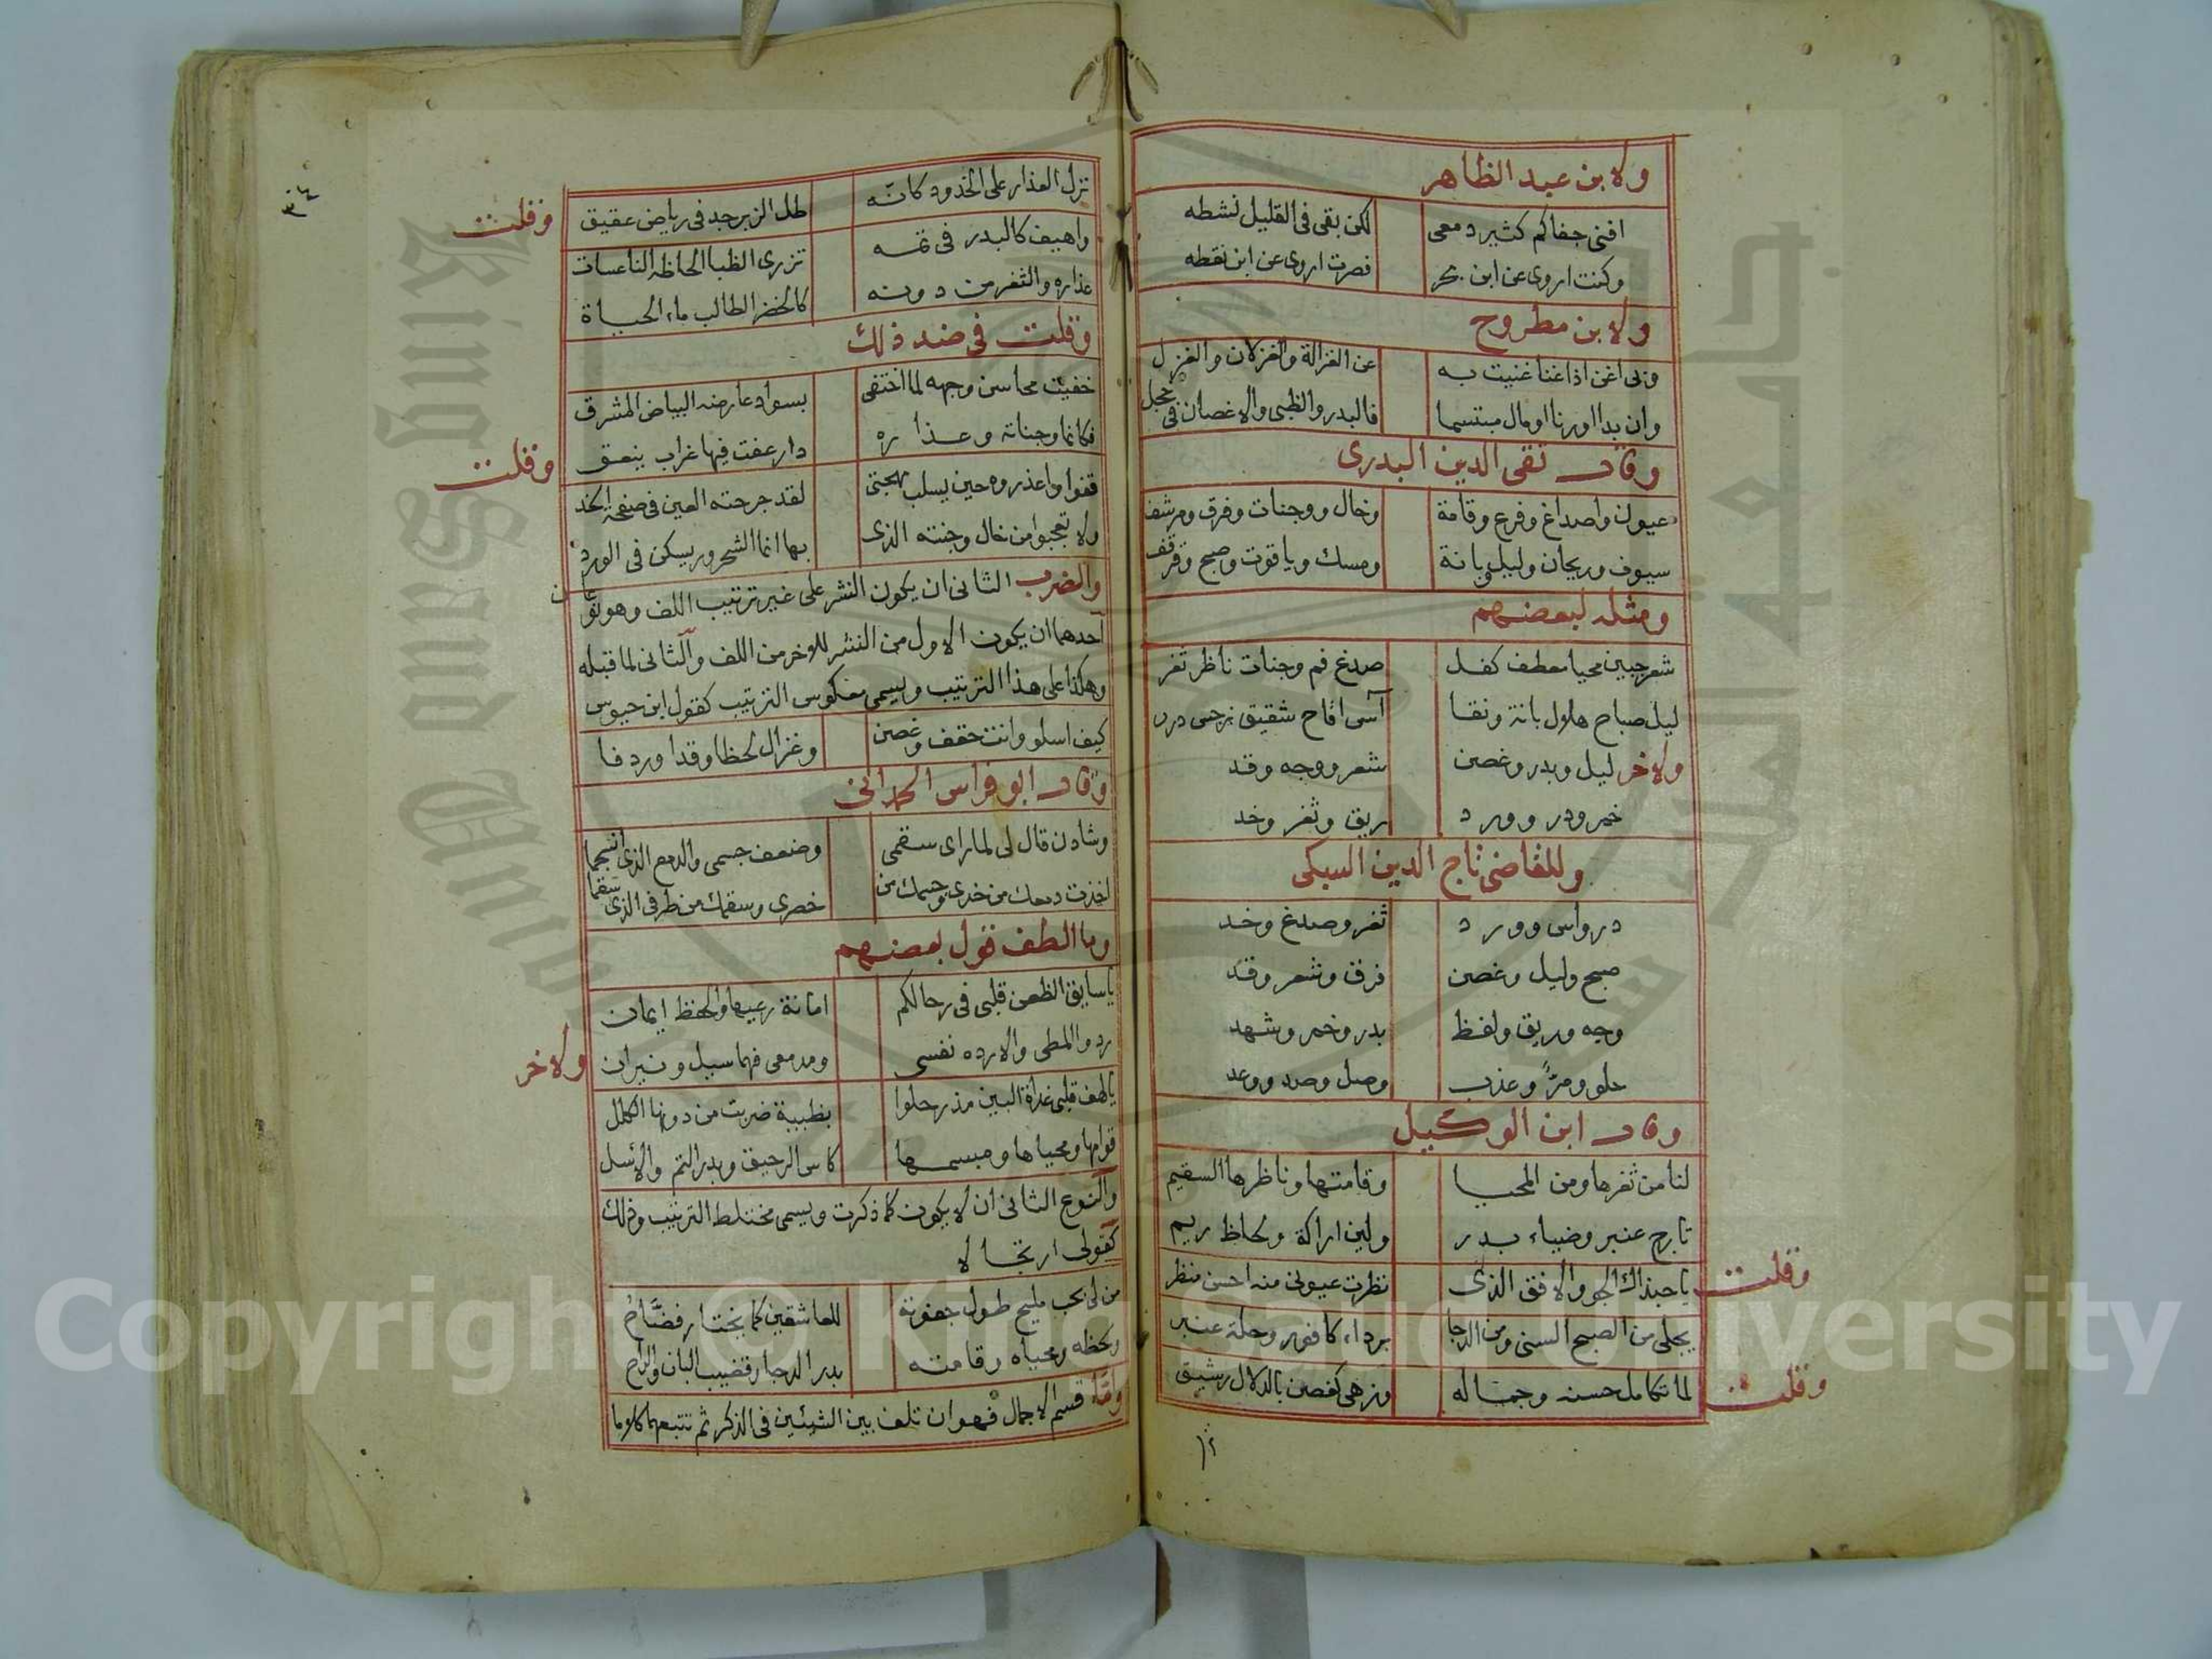 ولابن عبد الظاهر
افنى جفاكم كثير دمعى لكن بقى فى القليل نشطه
وكنت اروى عن ابن بحر فصرت اروى عن ابن نقطه
ولابن مطروح
وبى اغن اذا غنا غنيت به عن الغزالة والغزلان والغزل
وان بدا اورنا اومال مبتسما فالبدر والظبى والاغصان فى خجل
وقال تقى الدين البدرى
عيون واصداغ وفرع وقامة وخال ووجنات وفرق ومرشف
سيوف وريحان وليل وبانة ومسك وياقوت وصبح وقرقف
ومثله لبعضهم
شعر جبين محيا معطف كفل صدغ فم وجنات ناظر ثغر
ليل صباح هلال بانة ونقا آسى اقاح شقيق نرجس درر
ولاخر ليل وبدر وغصن شعر ووجه وقد
خمر ودر وورد ريق وثغر وخد
وللقاضى تاج الدين السبكى
درواس وورد ثغر وصدغ وخد
صبح وليل وغصن فرق وشعر وقد
وجه وريق ولفظ بدر وخمر وشهد
حلو ومر وعذب وصل وصد ووعد
وقال ابن الوكيل
لنا من ثغرها ومن المحيا وقامتها وناظرها السقيم
تارج عنبر وضياء بدر ولين اراكة ولحاظ ريم
وقلت
يا حبذاك الجو والافق الذى نظرت عيونى منه احسن منظر
يجلى من الصبح السنى ومن الدجا برداء كافور وحلة عنبر
وقلت
لما تكامل حسنه وجماله وزهى كغصن بالدلال رشيق
نزل العذار على الخدود كانه طل الزبرجد فى رياض عقيق
وقلت
واهيف كالبدر فى تمه تزرى الظبا الحاظه الناعسات
عذاره والثغر من دونه كالخضر الطالب ماء الحياة
وقلت فى ضد ذلك
خفيت محاسن وجهه لما اختفى بسواد عارضه البياض المشرق
فكانما وجناته وعذاره دار عفت فيها غراب ينعق
وقلت
قفوا واعذروه حين يسلب مهجتى لقد جرحته العين فى صفحة الخد
ولا تعجبوا من خال وجنته الذى بها انما الشحرور يسكن فى الورد
والضرب الثانى ان يكون النشر على غير ترتيب اللف وهو نوعان
احدهما ان يكون الاول من النشر للاخر من اللف والثانى لما قبله
وهكذا على هذا الترتيب ويسمى معكوس الترتيب كقول ابن حيوس
كيف اسلو وانت حقف وغصن وغزال لحظا وقدا وردفا
وقال ابو فراس الحمدانى
وشادن قال لى لما راى سقمى وضعف جسمى والدمع الذى انسجما
اخذت دمعك من خدى وجسمك من خصرى وسقمك من طرفى الذى سقما
وما الطف قول بعضهم
يا سايق الظعن قلبى فى رحالكم امانة رعيها والحفظ ايمان
ردوا المطى والا رده نفسى ومدمعى فهما سيل ونيران
ولاخر
يا لهف قلبى غداة البين مذ رحلوا بظبية ضربت من دونها الكلل
قوامها ومحياها ومبسمها كاس الرحيق وبدر التم والاسل
والنوع الثانى ان لا يكون كما ذكرت ويسمى مختلط الترتيب وذلك
كقولى ارتجالا
من لى بحب مليح طول جفوته للعاشقين كما يختار فضاح
ولحظه ومحياه وقامته بدر الدجا وقضيب البان والراح
واما قسم الاجمال فهو ان تلف بين الشيئين فى الذكر ثم تتبعهما كلاما
٣٤
Copyright © King Saud University
King Saud University